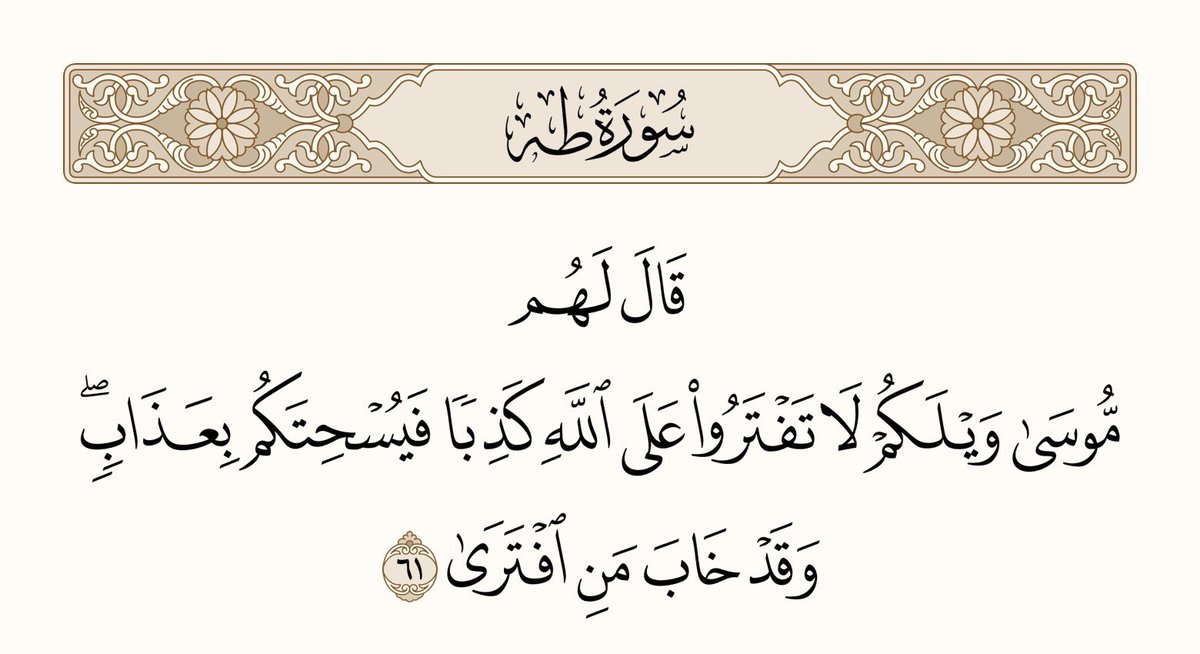 سُورَةُ طه
قَالَ لَهُم
مُّوسَىٰ وَيْلَكُمْ لَا تَفْتَرُوا۟ عَلَى ٱللَّهِ كَذِبًا فَيُسْحِتَكُم بِعَذَابٍ ۖ
وَقَدْ خَابَ مَنِ ٱفْتَرَىٰ ٦١